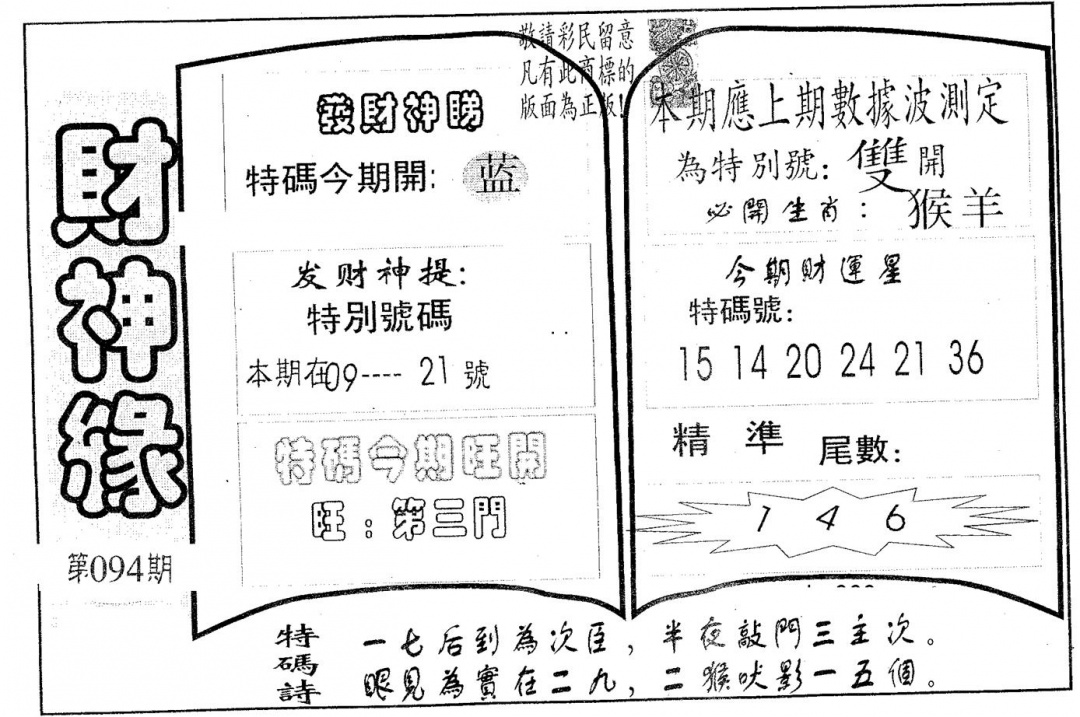 敬請彩民留意
凡有此商標的
版面為正版!
財神緣
第094期
發財神睇
特碼今期開: 蓝
发财神提:
特別號碼
本期在09---- 21 號
特碼今期旺開
旺:第三門
本期應上期數據波測定
為特別號: 雙 開
必開生肖: 猴羊
今期財運星
特碼號:
15 14 20 24 21 36
精 準 尾數:
1 4 6
特碼詩
一七后到為次臣,半夜敲門三主次。
眼見為實在二九,二猴吠影一五個。